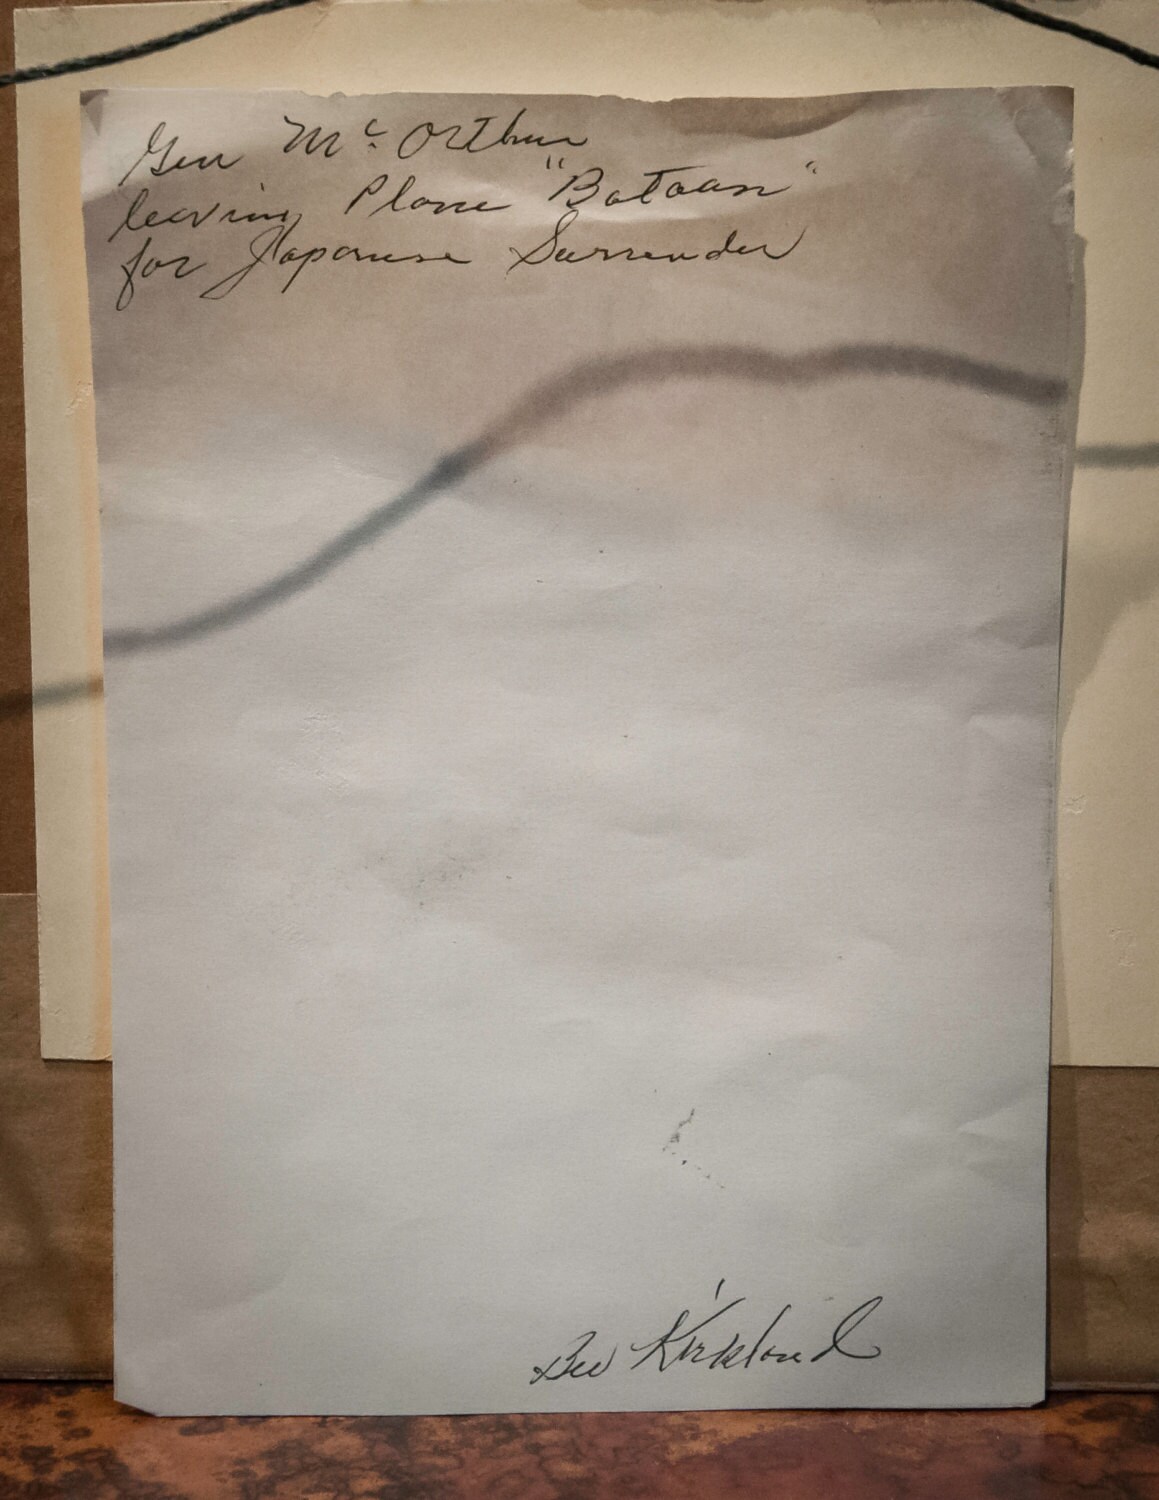 Gen Mc Arthur
leaving Plane "Bataan"
for Japanese Surrender
Bev Kirkland